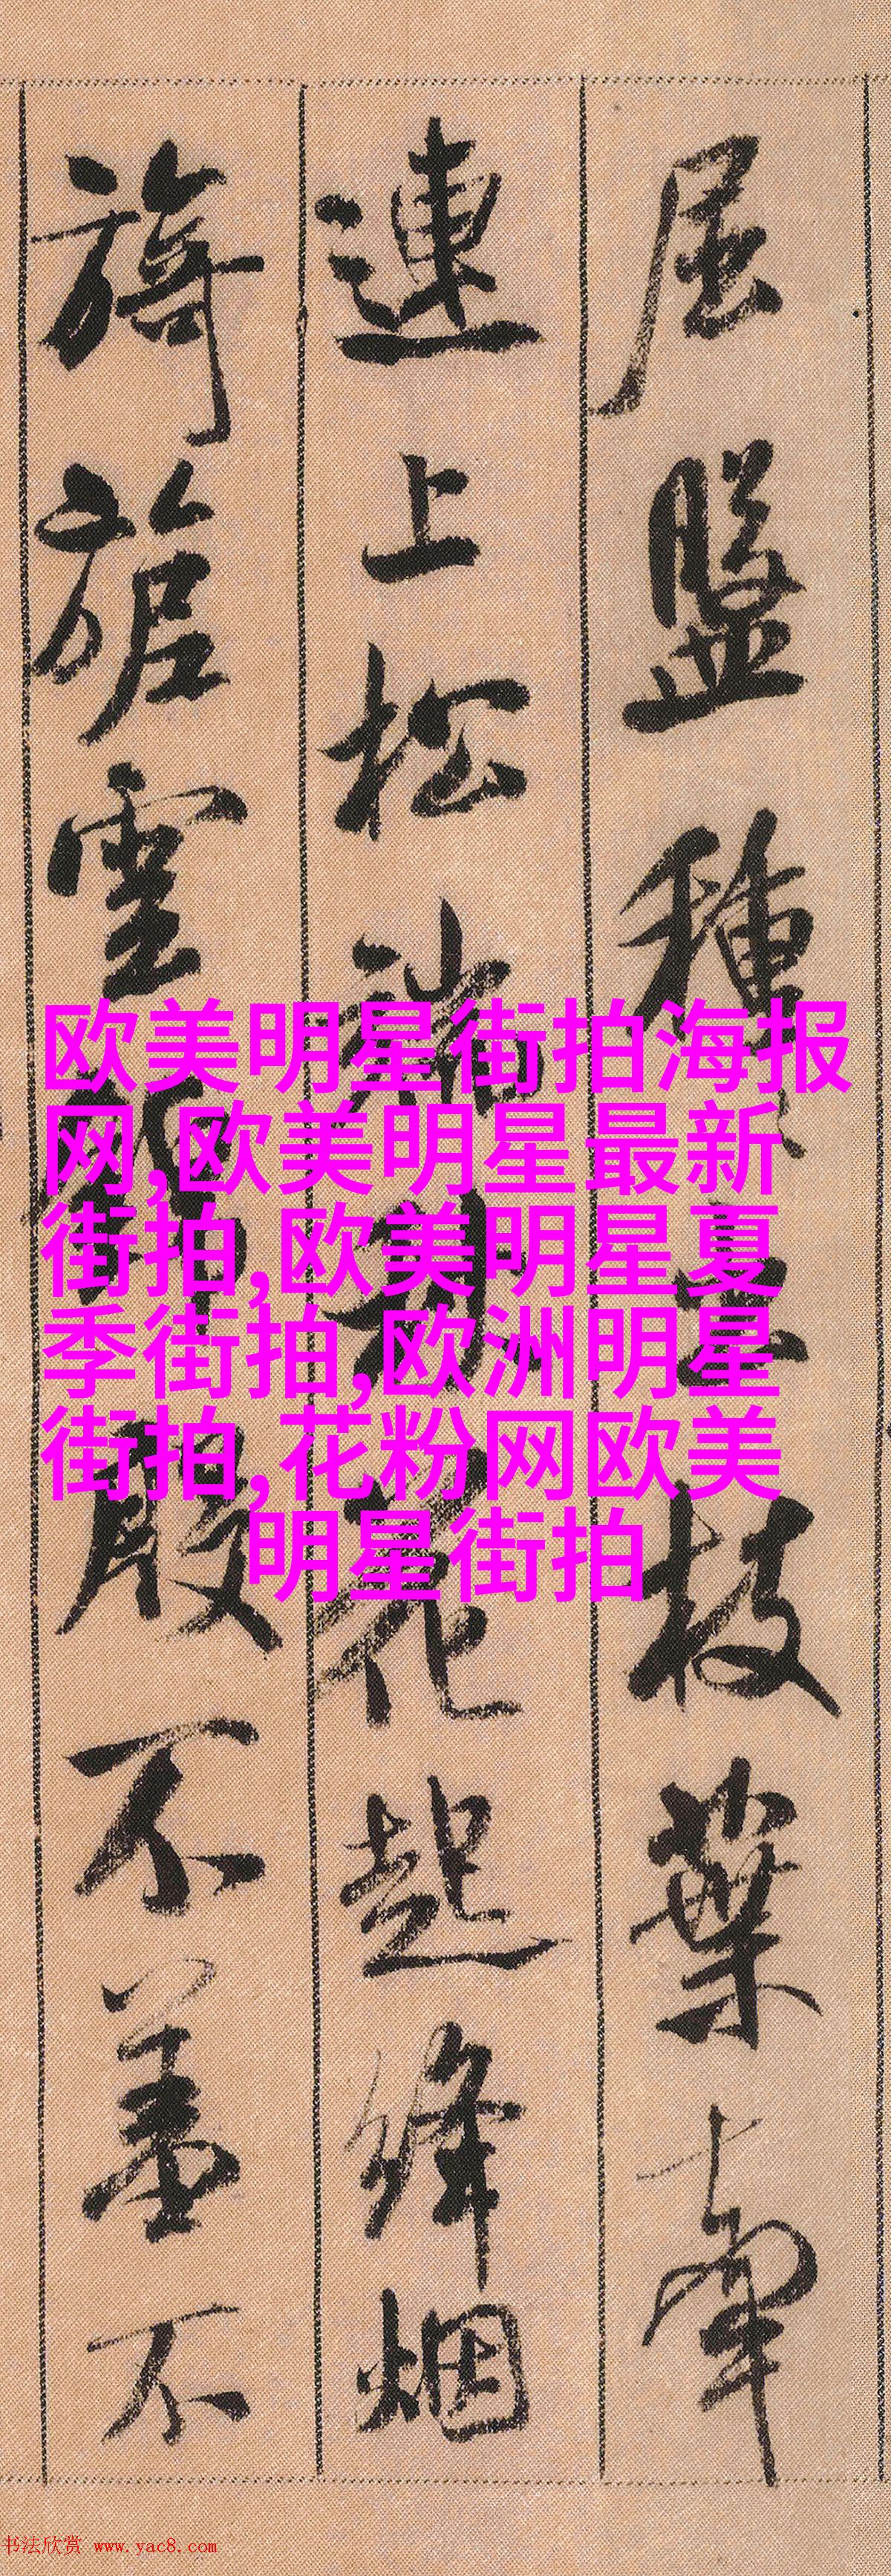 屈盤種
枝葉牽
連上松
花起绛烟
旖旎雲
殷不羞不
欧美明星街拍海报
网,欧美明星最新
街拍,欧美明星夏
季街拍,欧洲明星
街拍,花粉网欧美
明星街拍
书法欣赏 www.yac8.com